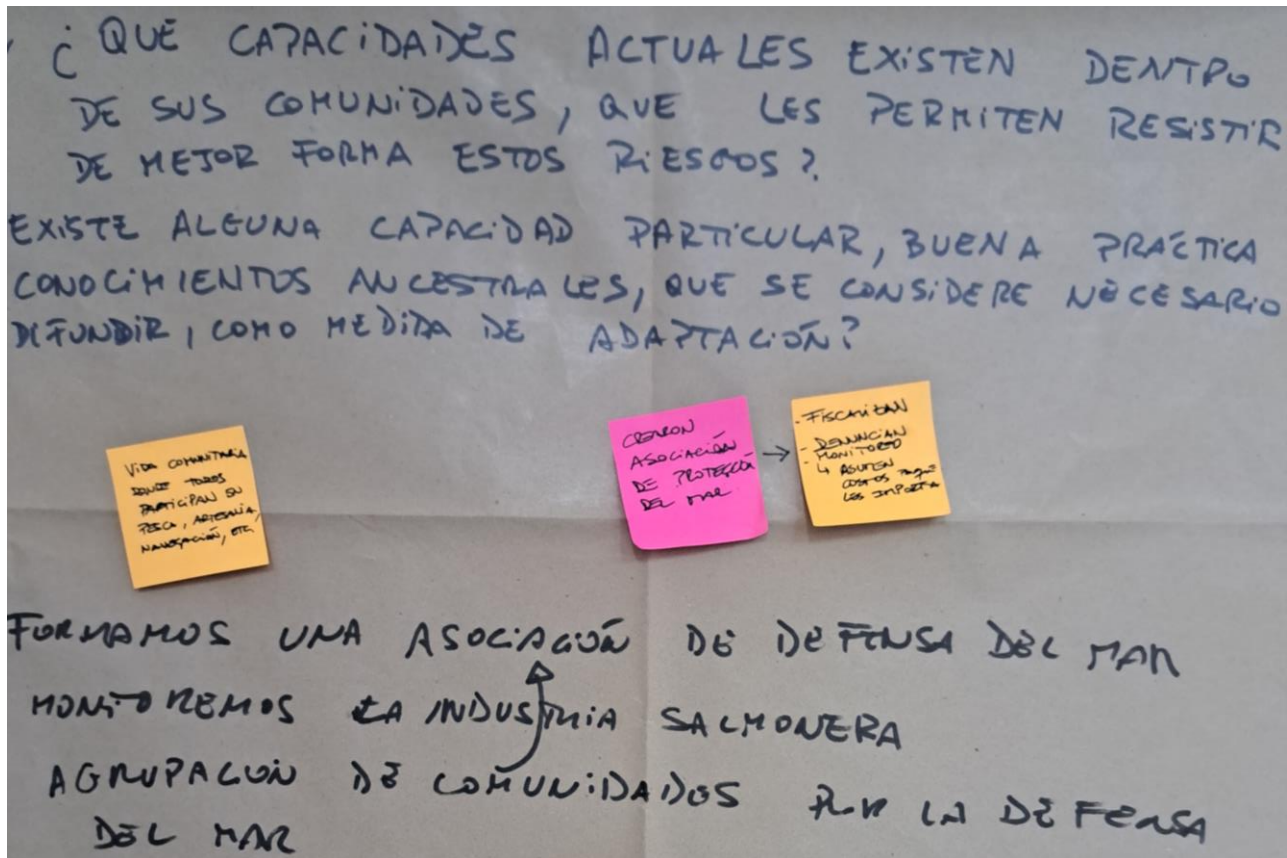 ¿QUÉ CAPACIDADES ACTUALES EXISTEN DENTRO
DE SUS COMUNIDADES, QUE LES PERMITEN RESISTIR
DE MEJOR FORMA ESTOS RIESGOS?
EXISTE ALGUNA CAPACIDAD PARTICULAR, BUENA PRÁCTICA
CONOCIMIENTOS ANCESTRALES, QUE SE CONSIDERE NECESARIO
DIFUNDIR, COMO MEDIDA DE ADAPTACIÓN?
VIDA COMUNITARIA
DONDE TODOS
PARTICIPAN EN
PESCA, ARTESANÍA,
NAVEGACIÓN, ETC.
CREARON
ASOCIACIÓN
DE PROTECCIÓN
DEL MAR
→
- FISCALIZAN
- DENUNCIAN
- MONITOREO
↳ ASUMEN
COSTOS PORQUE
LES IMPORTA
FORMAMOS UNA ASOCIACIÓN DE DEFENSA DEL MAR
MONITOREMOS LA INDUSTRIA SALMONERA
AGRUPACION DE COMUNIDADES POR LA DEFENSA
DEL MAR